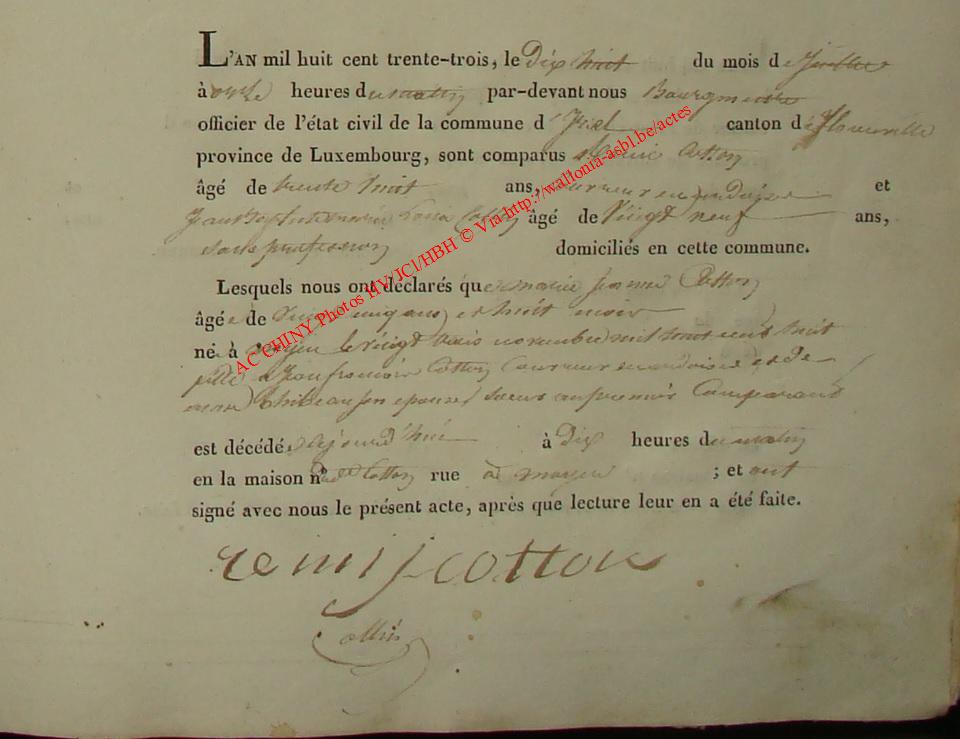 L'AN mil huit cent trente-trois, le Dix huit du mois de Juillet
à onze heures du matin par-devant nous Bourgmestre
officier de l'état civil de la commune d'Izel canton de florenville
province de Luxembourg, sont comparus Cotton
âgé de trente huit ans, couvreur en ardoise et
Jean Baptiste âgé de Vingt neuf ans,
sans profession domiciliés en cette commune.
Lesquels nous ont déclarés que marie jeanne Cotton
âgée de Vingt cinq ans et huit mois
né à moyen le vingt trois novembre mil huit cent huit
fille de Jean francois Cotton Couvreur en ardoise et de
marie thibeau son epouse, soeur au premier Comparant
est décédée aujourd'hui à dix heures du matin
en la maison n° de Cotton rue à moyen ; et ont
signé avec nous le présent acte, après que lecture leur en a été faite.
remij cotton
AC CHINY Photos HV/JCl/HBH © Via-http://wallonia-asbl.be/actes